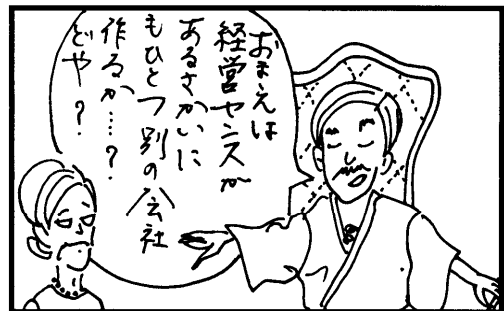 おまえは
経営センスが
あるさかいに
もひとつ別の会社
作るか……？
どや？